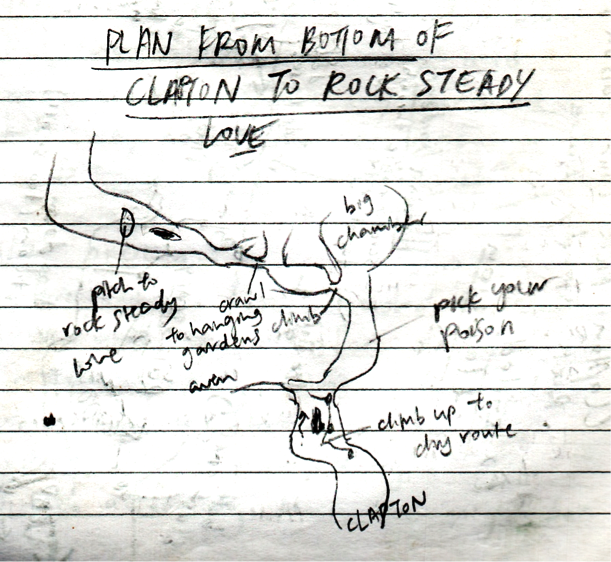 PLAN FROM BOTTOM OF
CLAPTON TO ROCK STEADY
LOVE
big
chamber
pitch to
rock steady
love
crawl
to hanging
gardens
climb
pick your
poison
aven
climb up to
dry route
CLAPTON